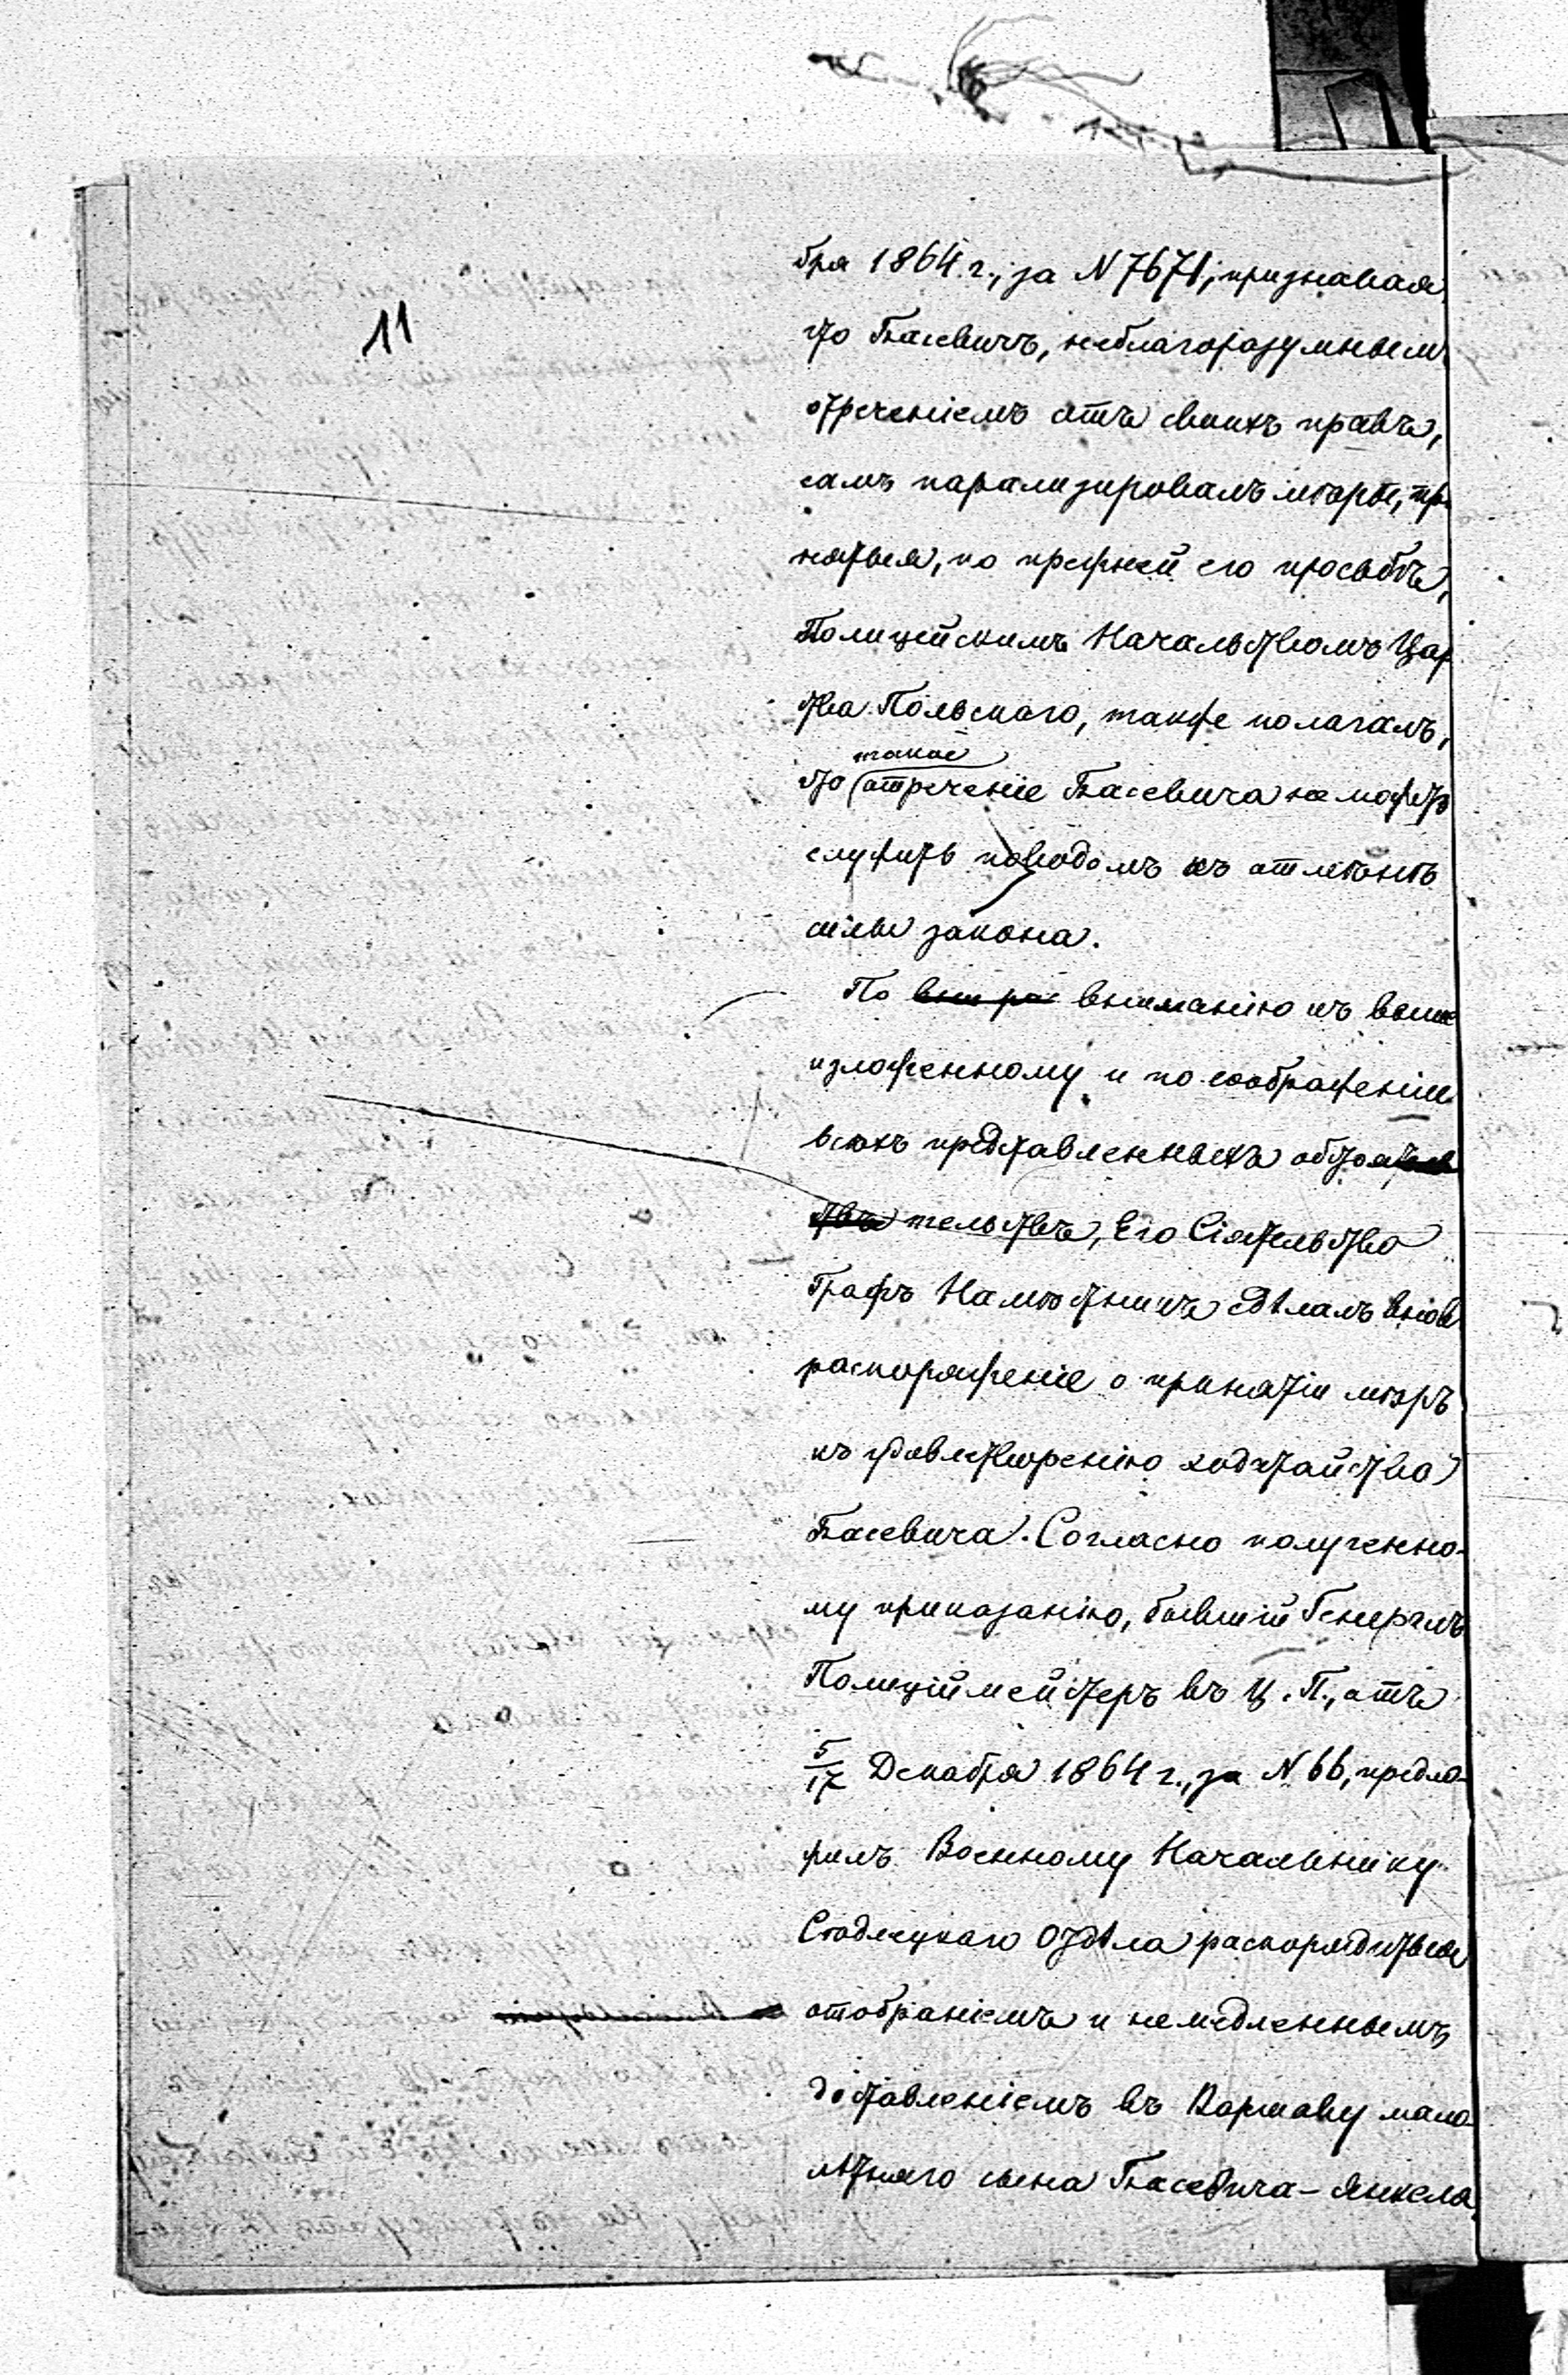 11
бря 1864 г., за N 7671, признавая,
что Басевичъ, неблагоразумнымъ
отреченіемъ отъ своихъ правъ,
самъ парализировалъ мѣры, при
нятыя, по прежней его просьбѣ,
Полицейскимъ Начальствомъ Цар
ства Польскаго, также полагалъ,
такое
что отреченіе Басевича не можетъ
служить поводомъ къ отмѣнѣ
силы закона.
По вниманію къ выше
изложенному и по соображеніи
всѣхъ представленныхъ обстоя
тельствъ, Его Сіятельство
Графъ Намѣстникъ сдѣлалъ вновь
распоряженіе о принятіи мѣръ
къ удовлетворенію ходатайства
Басевича. Согласно полученно-
му приказанію, бывшій Генералъ
Полиціймейстеръ въ Ц. П., отъ
5/17 Декабря 1864 г., за N 66, предло-
жилъ Военному Начальнику
Сѣдлецкаго Отдѣла распорядиться
отобраніемъ и немедленнымъ
доставленіемъ въ Варшаву мало
лѣтняго сына Басевича - Янкеля